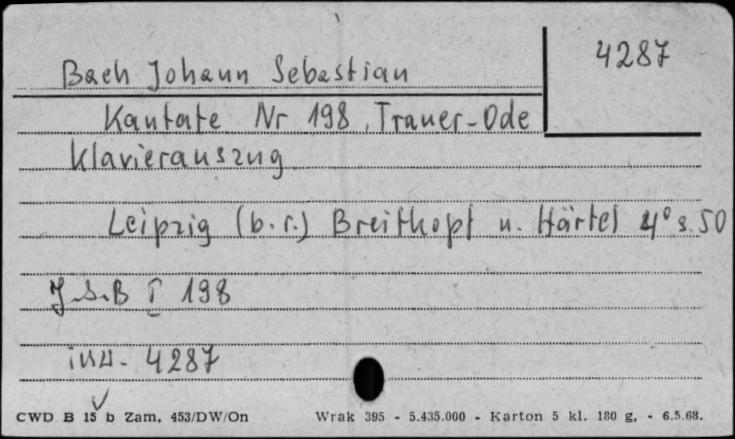 4287
Bach Johann Sebastian
Kantate Nr 198, Trauer-Ode
Klavierauszug
Leipzig (b.r.) Breitkopf u. Härtel 4° s. 50
J.S.B I 198
inw. 4287
CWD B 15 b Zam. 453/DW/On Wrak 395 - 5.435.000 - Karton 5 kl. 180 g. - 6.5.68.